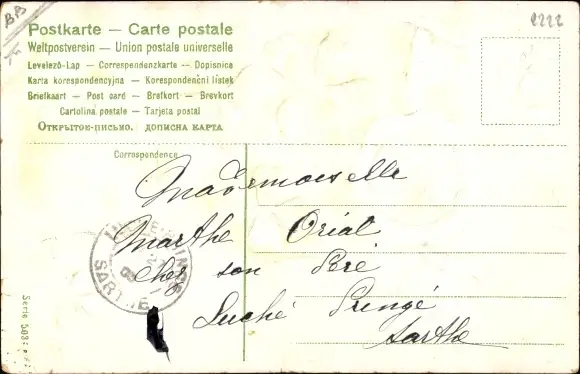 BB
2222
Postkarte — Carte postale
Weltpostverein — Union postale universelle
Levelező-Lap — Correspondenzkarte — Dopisnice
Karta korespondencyjna — Korespondenční lístek
Briefkaart — Post card — Brefkort — Brevkort
Cartolina postale — Tarjeta postal
Открытое-письмо. дописна карта
Correspondence
Mademoiselle
Marthe Oriat
chez son Peré
Luché Pringé
Sarthe
SARTHE
Serie 503